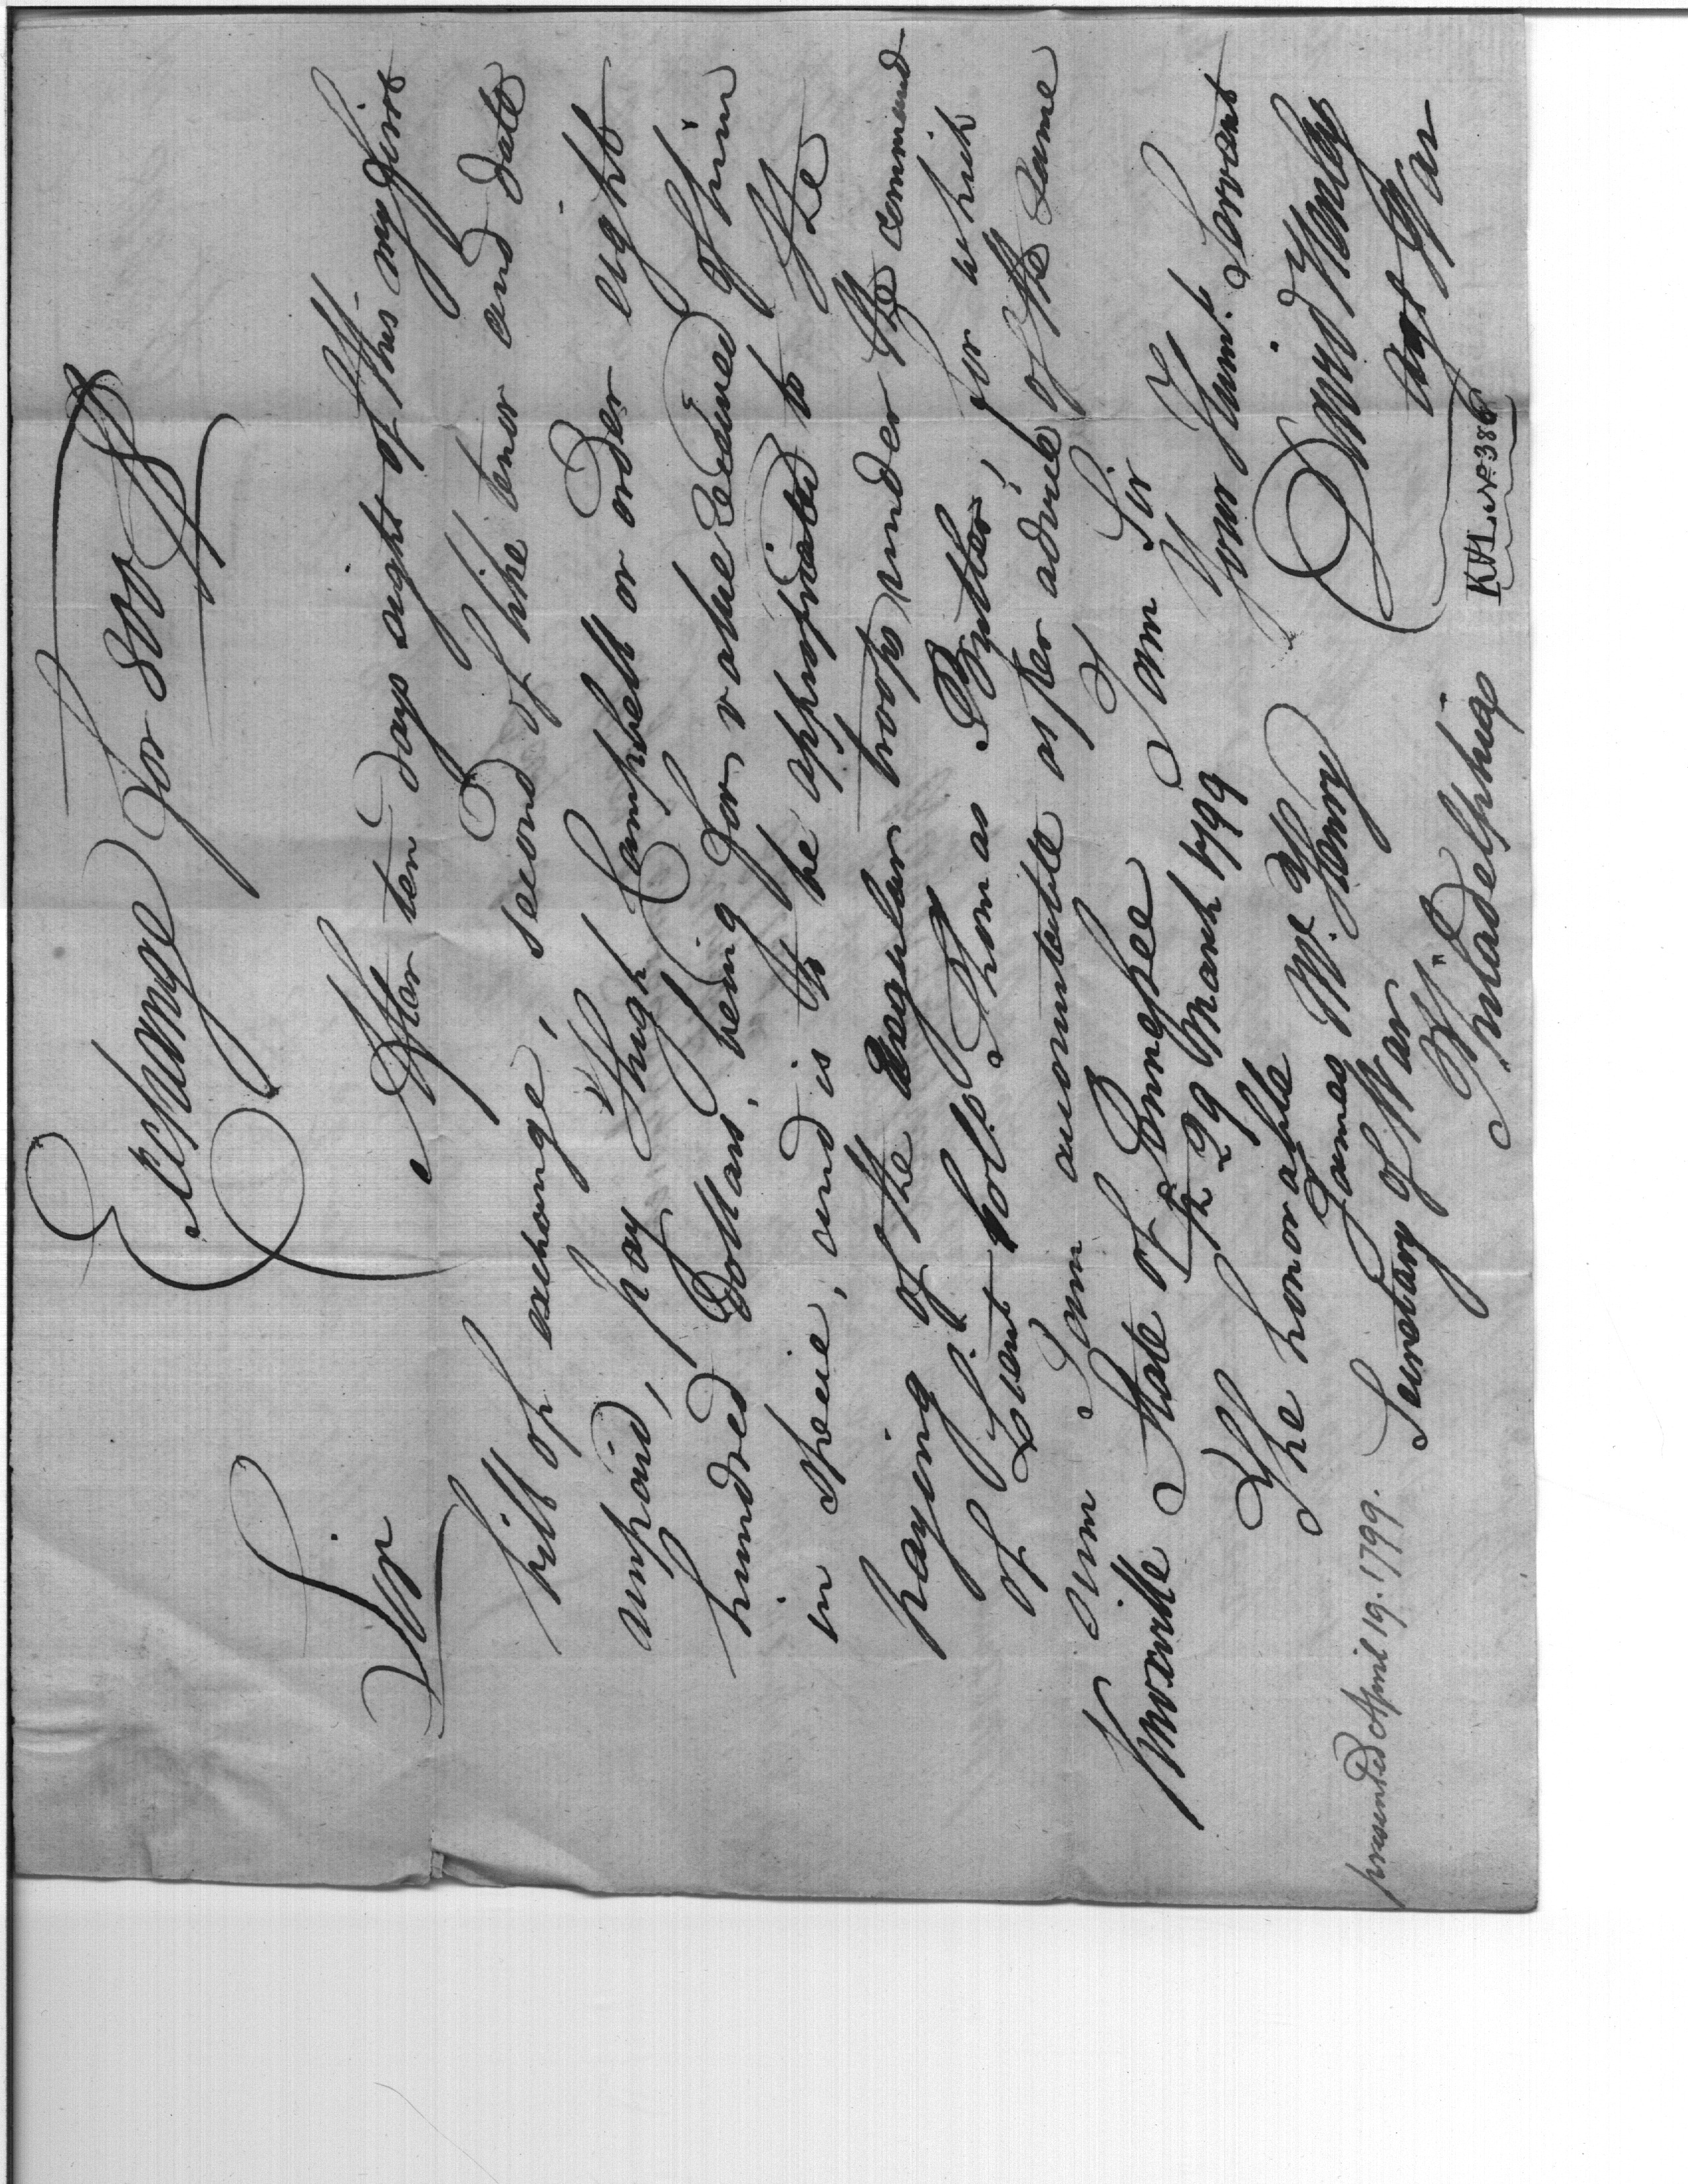 Exchange for 800 D
Sir
After ten days sight of this my first
bill of exchange, second of like tenor and date
unpaid, pay Hugh Campbell or order eight
hundred Dollars, being for value received of him
in specie, and is to be appropriated to the
paying of the regular troops under the command
of Lieut Col. Thomas Butler, for which
sum I am accountable as per advice of the same
I am Sir
Knoxville State of Tennessee
Your Humb. Servant
29 March 1799
David Henley
The honorable
agt War
James McHenry
Secretary of War
Philadelphia
presented April 19. 1799.
KH No. 386